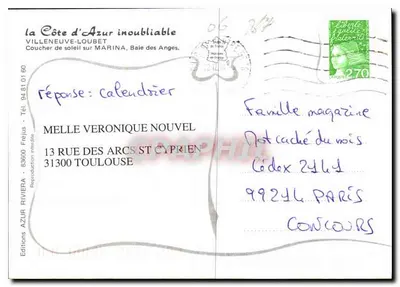 la Côte d'Azur inoubliable
VILLENEUVE-LOUBET
Coucher de soleil sur MARINA, Baie des Anges.
2,70
réponse: calendrier
MELLE VERONIQUE NOUVEL
13 RUE DES ARCS ST CYPRIEN
31300 TOULOUSE
Famille magazine
Mot caché du mois
Cédex 2141
99214 PARIS
CONCOURS
Editions AZUR RIVIERA - 83600 Fréjus - Tél. 94.81.01.60
Reproduction interdite